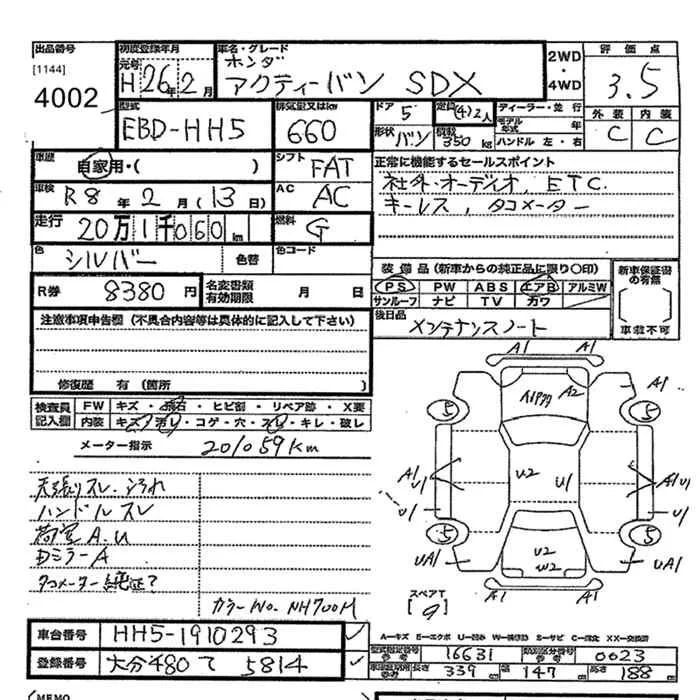 出品番号
[1144]
4002
初度登録年月
元号
H 26年 2月
車名・グレード
ホンダ
アクティーバン SDX
2WD
・
4WD
評価点
3.5
型式
EBD-HH5
排気量又はkw
660
ドア 5
形状 バン
定員 (4)2人
積載 350 kg
ディーラー・並行
モデル年式 年
ハンドル 左・右
外装 内装
C C
車歴
自家用・( )
シフト FAT
正常に機能するセールスポイント
社外・オーディオ, ETC.
キーレス, タコメーター
車検
R8年 2月 (13日)
AC AC
走行
20万1千060km
燃料 G
色 シルバー 色替
色コード
装備品 (新車からの純正品に限り〇印)
PS PW ABS エアB アルミW
サンルーフ ナビ TV カワ
新車保証書の有無
車載不可
R券 8380円
名変書類
有効期限 月 日
後日品
メンテナンスノート
注意事項申告欄 (不具合内容等は具体的に記入して下さい)
修復歴 有 (箇所 )
検査員記入欄
FW キズ・飛石・ヒビ割・リペア跡・X要
内装 キズ・汚レ・コゲ・穴・スレ・キレ・破レ
メーター指示 201059km
天張りスレ・汚れ
ハンドルスレ
荷室 A.U
DミラーA
タコメーター純正?
カラーNo. NH700M
A1 A1
A1 A2
A1
5 5
A1 U1 U2 U1 A1 U1
U1 U1
5 5
UA1 U2 W2 UA1
A1 A1
スペアT
[9]
A…キズ E…エクボ U…凹み W…補修跡 S…サビ C…腐食 XX…交換済
車台番号 HH5-1910293
型式指定番号 参考 16631
類別区分番号 参考 0023
登録番号 大分480て 5814
長さ 339 cm 幅 147 cm 高さ 188 cm
MEMO